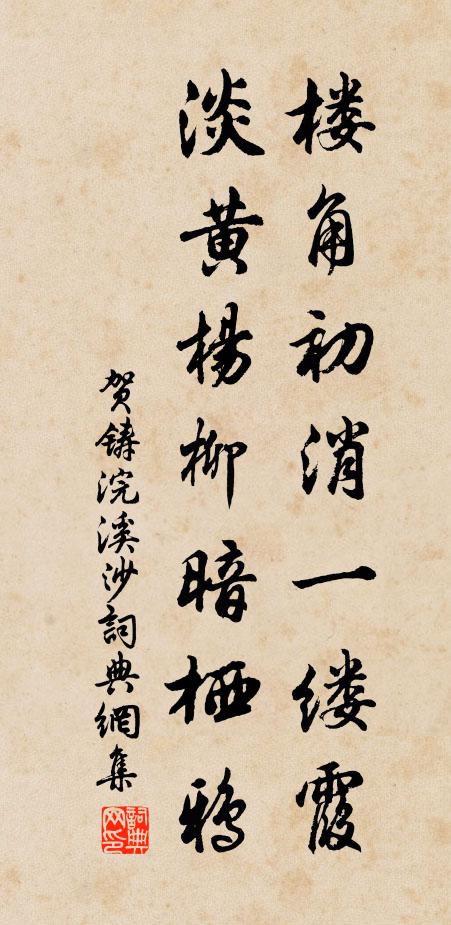 楼角初消一缕霞
淡黄杨柳暗栖鸦
贺铸浣溪沙詞典網集
詞典网印